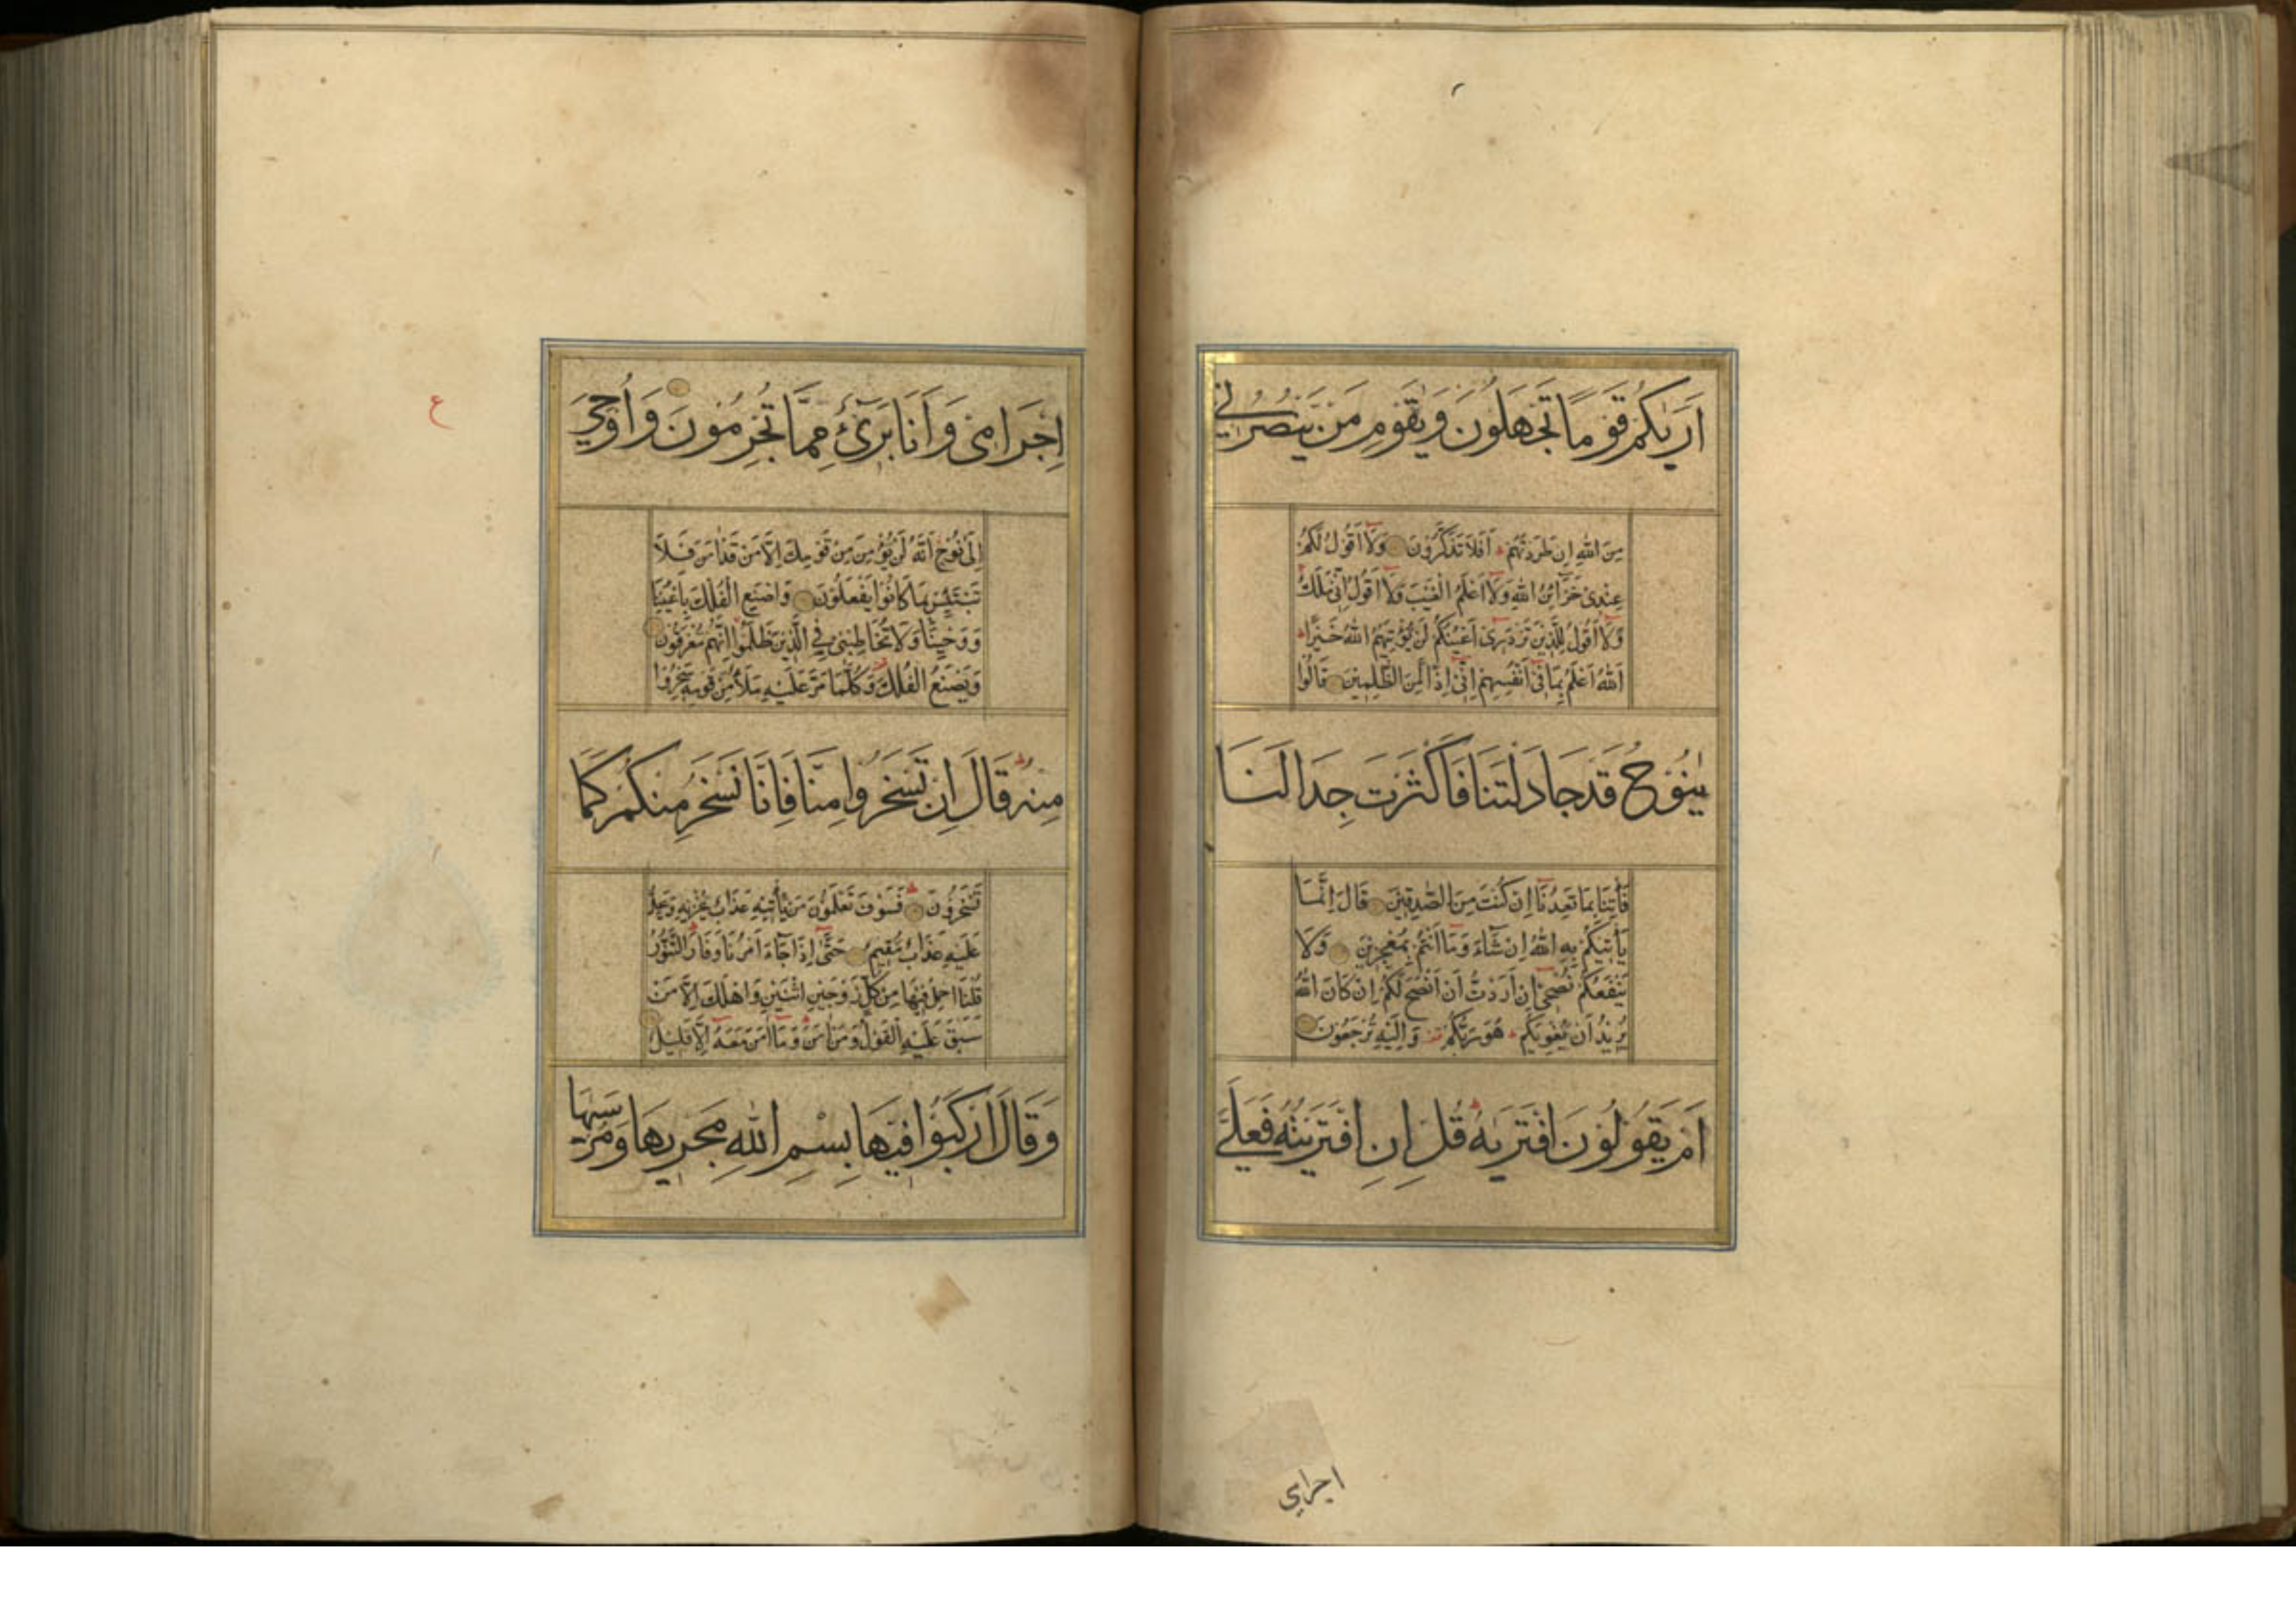 اَرٰيكُمْ قَوْمًا تَجْهَلُونَ وَيٰقَوْمِ مَنْ يَنْصُرُنِي
مِنَ اللهِ اِنْ طَرَدْتُهُمْ اَفَلَا تَذَكَّرُونَ وَلَا اَقُولُ لَكُمْ
عِنْدِى خَزَآئِنُ اللهِ وَلَا اَعْلَمُ الْغَيْبَ وَلَا اَقُولُ اِنِّى مَلَكٌ
وَلَا اَقُولُ لِلَّذِينَ تَزْدَرِى اَعْيُنُكُمْ لَنْ يُؤْتِيَهُمُ اللهُ خَيْرًا
اَللهُ اَعْلَمُ بِمَا فِى اَنْفُسِهِمْ اِنِّى اِذًا لَمِنَ الظّٰلِمِينَ قَالُوا
يٰنُوحُ قَدْ جَادَلْتَنَا فَاَكْثَرْتَ جِدَالَنَا
فَأْتِنَا بِمَا تَعِدُنَا اِنْ كُنْتَ مِنَ الصّٰدِقِينَ قَالَ اِنَّمَا
يَأْتِيكُمْ بِهِ اللهُ اِنْ شَآءَ وَمَا اَنْتُمْ بِمُعْجِزِينَ وَلَا
يَنْفَعُكُمْ نُصْحِى اِنْ اَرَدْتُ اَنْ اَنْصَحَ لَكُمْ اِنْ كَانَ اللهُ
يُرِيدُ اَنْ يُغْوِيَكُمْ هُوَ رَبُّكُمْ وَاِلَيْهِ تُرْجَعُونَ
اَمْ يَقُولُونَ افْتَرٰيهُ قُلْ اِنِ افْتَرَيْتُهُ فَعَلَيَّ
اجرامى
ع
اِجْرَامِى وَاَنَا بَرِىٓءٌ مِمَّا تُجْرِمُونَ وَاُوحِيَ
اِلَى نُوحٍ اَنَّهُ لَنْ يُؤْمِنَ مِنْ قَوْمِكَ اِلَّا مَنْ قَدْ اٰمَنَ فَلَا
تَبْتَئِسْ بِمَا كَانُوا يَفْعَلُونَ وَاصْنَعِ الْفُلْكَ بِاَعْيُنِنَا
وَوَحْيِنَا وَلَا تُخَاطِبْنِى فِي الَّذِينَ ظَلَمُوا اِنَّهُمْ مُغْرَقُونَ
وَيَصْنَعُ الْفُلْكَ وَكُلَّمَا مَرَّ عَلَيْهِ مَلَأٌ مِنْ قَوْمِهِ سَخِرُوا
مِنْهُ قَالَ اِنْ تَسْخَرُوا مِنَّا فَاِنَّا نَسْخَرُ مِنْكُمْ كَمَا
تَسْخَرُونَ فَسَوْفَ تَعْلَمُونَ مَنْ يَأْتِيهِ عَذَابٌ يُخْزِيهِ وَيَحِلُّ
عَلَيْهِ عَذَابٌ مُقِيمٌ حَتَّى اِذَا جَآءَ اَمْرُنَا وَفَارَ التَّنُّورُ
قُلْنَا احْمِلْ فِيهَا مِنْ كُلٍّ زَوْجَيْنِ اثْنَيْنِ وَاَهْلَكَ اِلَّا مَنْ
سَبَقَ عَلَيْهِ الْقَوْلُ وَمَنْ اٰمَنَ وَمَا اٰمَنَ مَعَهُ اِلَّا قَلِيلٌ
وَقَالَ ارْكَبُوا فِيهَا بِسْمِ اللهِ مَجْرٰيهَا وَمُرْسٰيهَا